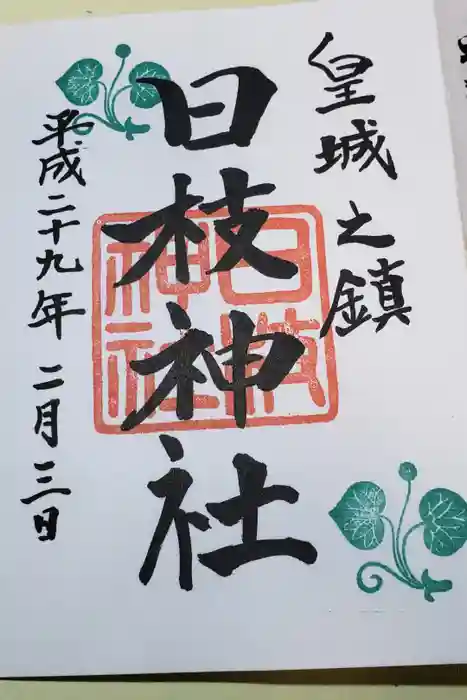 皇城之鎮
日枝神社
日枝
神社
平成二十九年 二月三日